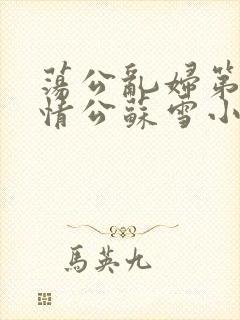 蕩公亂婦第
情公蘇雪小
馬英九